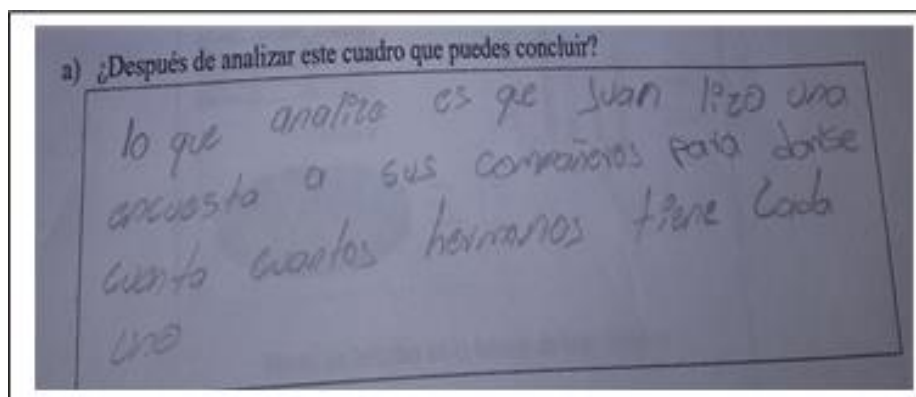 a) ¿Después de analizar este cuadro que puedes concluir?
lo que analizo es qe Juan hizo una
encuesta a sus compañeros para darse
cuenta cuantos hermanos tiene Cada
uno